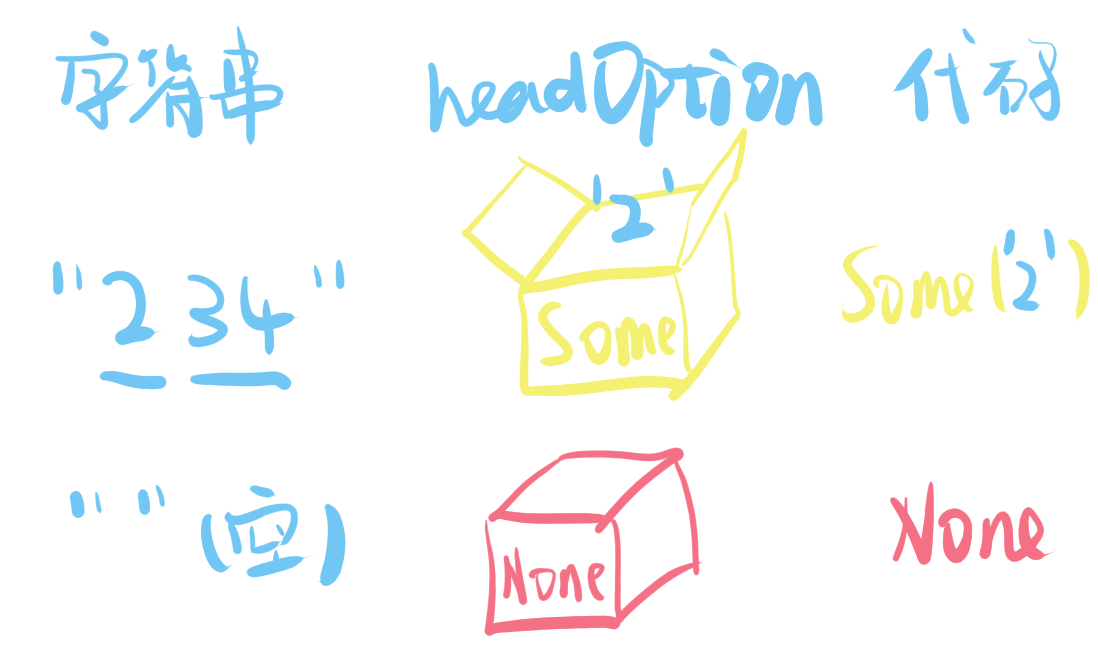 字符串 headOption 代码
'2'
"234" Some Some('2')
"" (空) None None